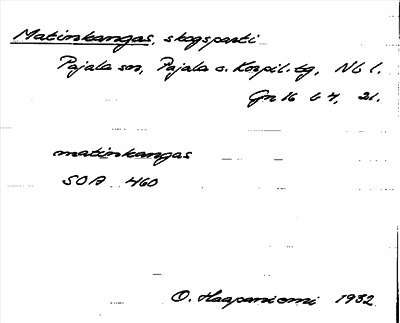 Matinkangas, skogsparti
Pajala sn, Pajala o. Korpil. tg, Nb l.
Gn 16 b 4, 21.
matinkangas
SOA 460
O. Haapaniemi 1932